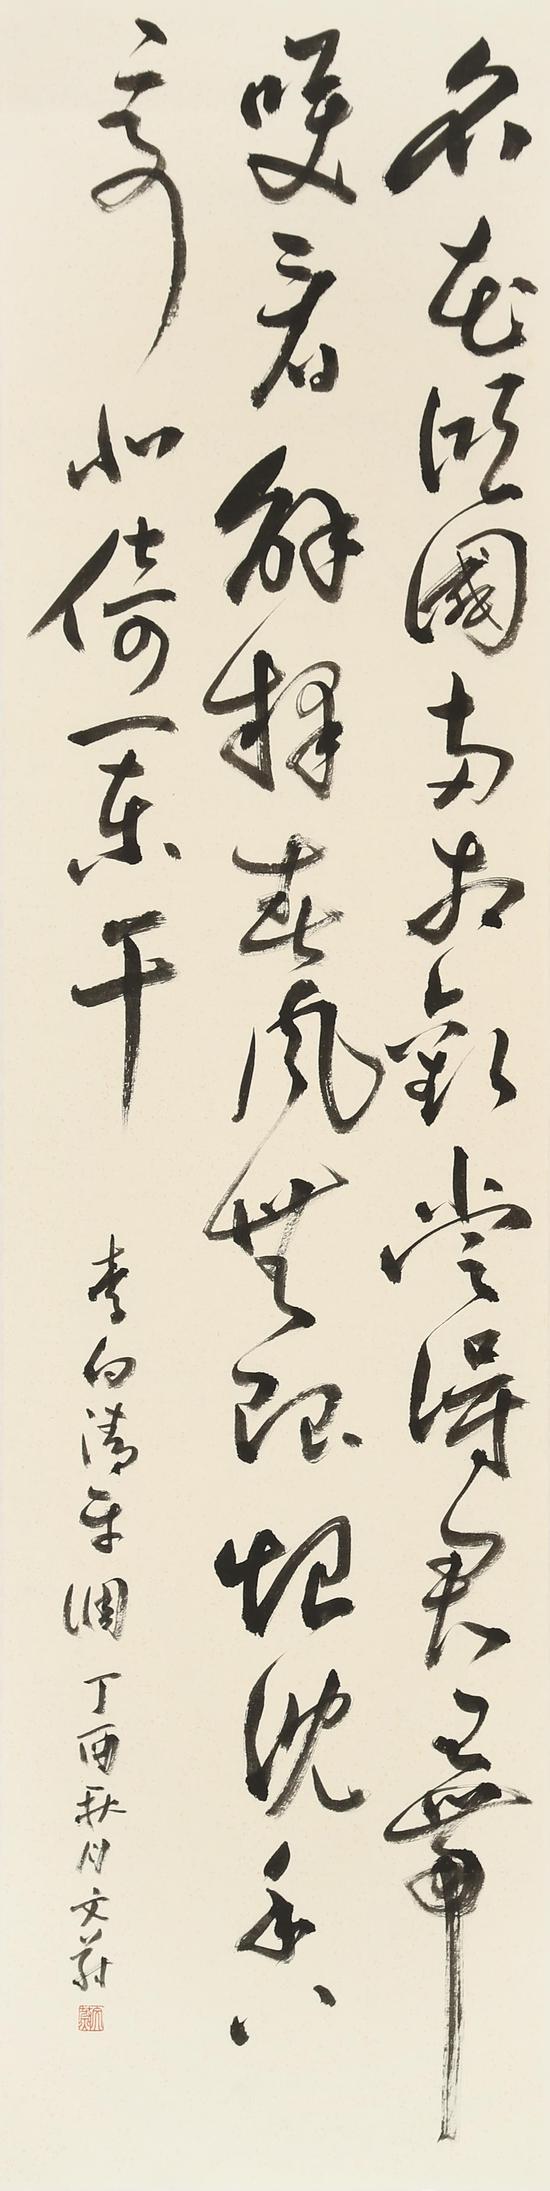 名花倾國两相歡常得君王带
笑看解释春风無限恨沈香
亭北倚闌干
李白清平调 丁酉秋月文蔚